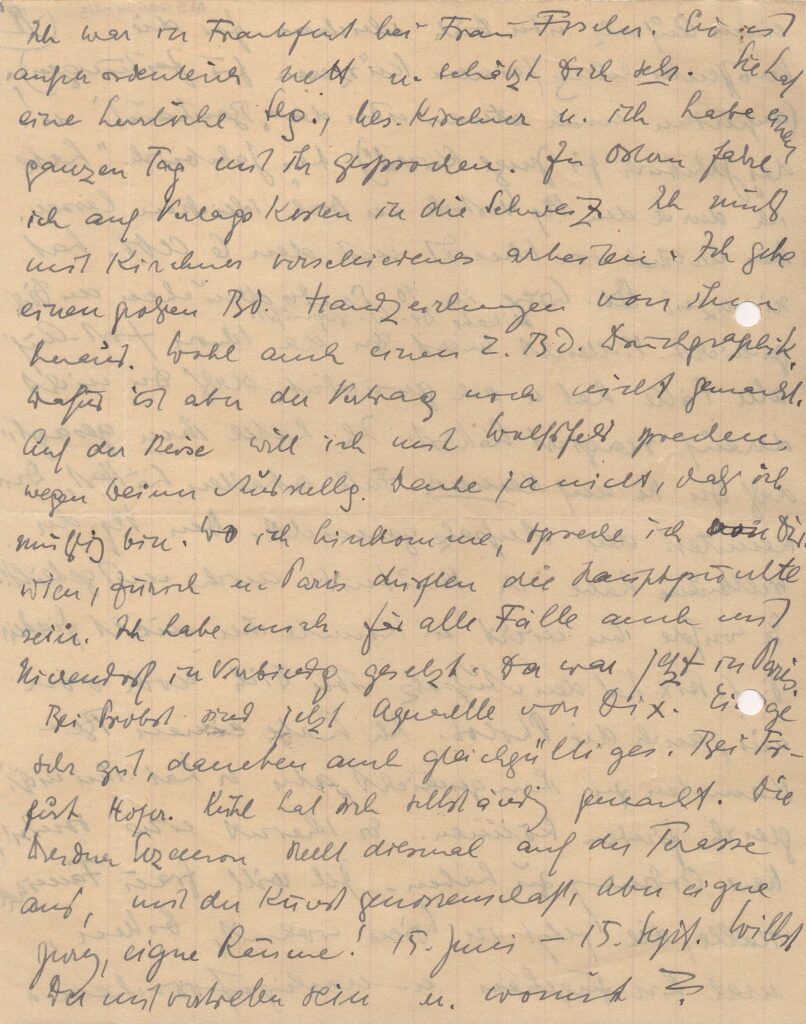 Ich war in Frankfurt bei Frau Fischer. Sie ist
außerordentlich nett u. schätzt Dich sehr. Sie hat
eine herrliche Slg., bes. Kirchner u. ich habe einen
ganzen Tag mit ihr gesprochen. Zu Ostern fahre
ich auf Verlags Kosten in die Schweiz. Ich muß
mit Kirchner verschiedenes arbeiten. Ich gebe
einen großen Bd. Handzeichnungen von ihm
heraus. Wohl auch einen 2. Bd. Druckgraphik.
Dafür ist aber der Vertrag noch nicht gemacht.
Auf der Reise will ich mit Wolfsfeld sprechen
wegen Ausstellg. Denke ja nicht, daß ich
müßig bin. Wo ich hinkomme, spreche ich von Dir.
Wien, Zürich u. Paris dürften die Hauptpunkte
sein. Ich habe mich für alle Fälle auch mit
Nierendorf in Verbindg gesetzt. Der war jetzt in Paris.
Bei Probst sind jetzt Aquarelle von Dix. Einige
sehr gut, daneben auch gleichgültiges. Bei
Hofer. Kühl hat sich selbständig gemacht. Die
Dresdner Sezession stellt diesmal auf der Terasse
aus, mit der Kunstgenossenschaft, aber eigne
Jury, eigne Räume! 15. Juni – 15. Sept. Willst
Du mit vertreten sein u. womit?